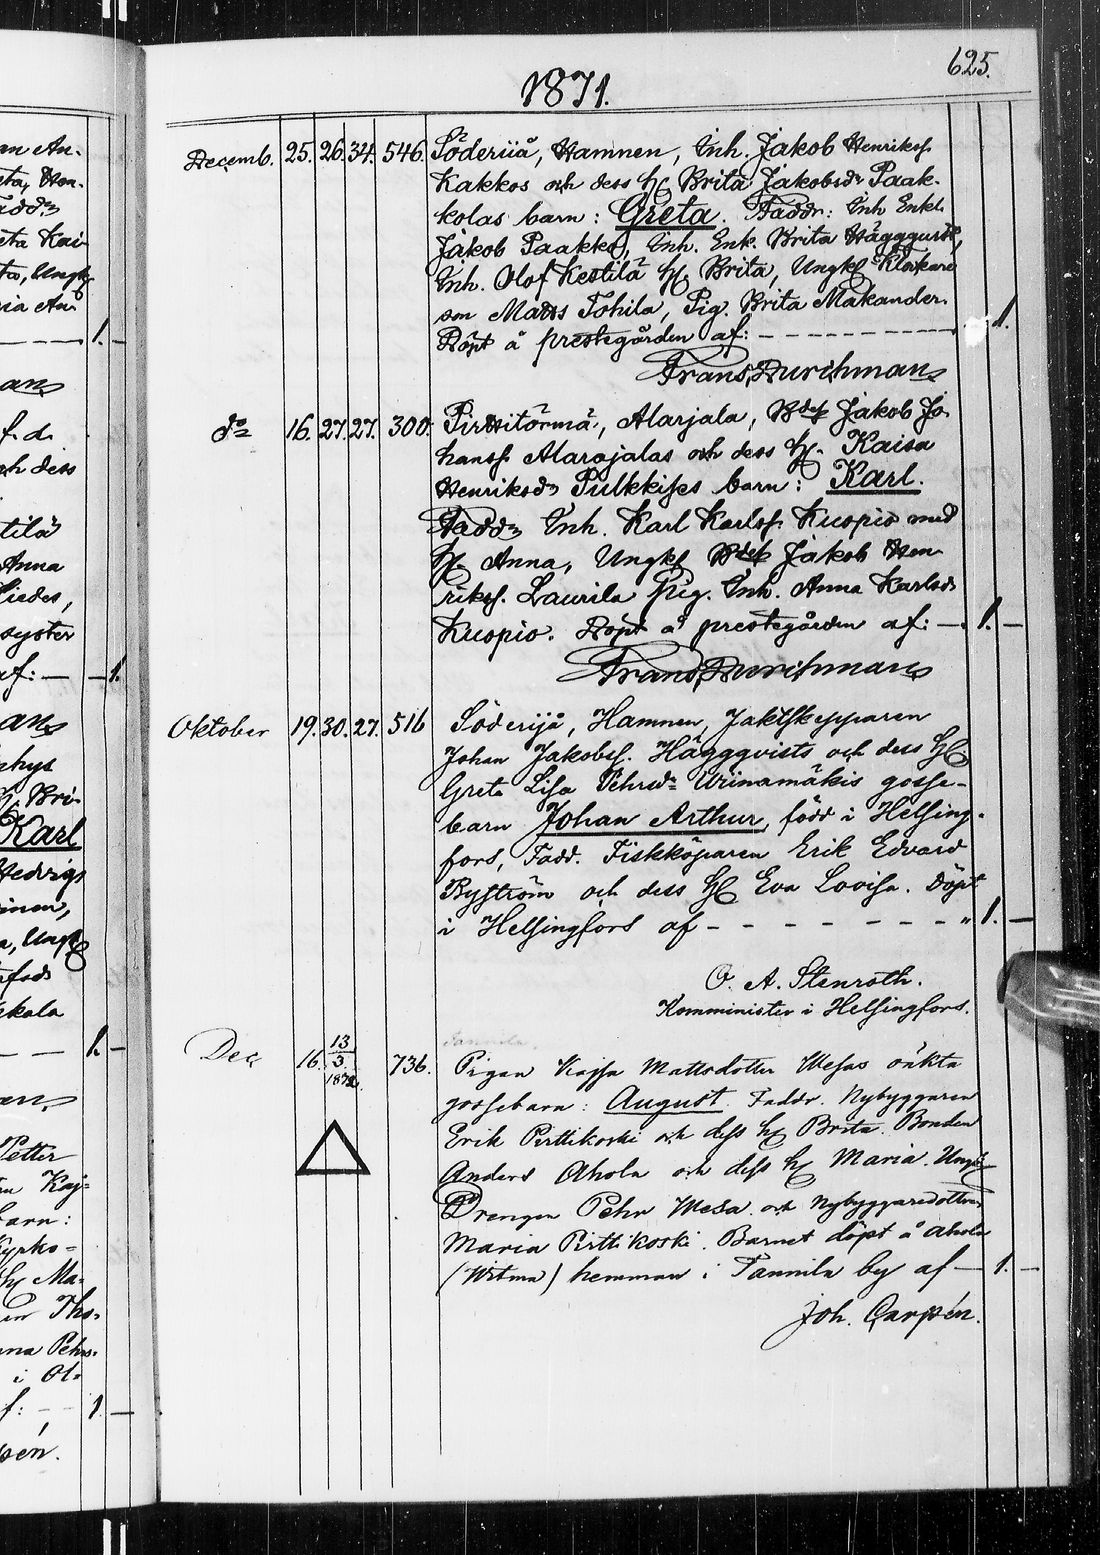 625.
1871.
Decemb. 25. 26. 34. 546. Söderijå, Hamnen, Inh. Jakob Henrikss.
Kakkos och dess H. Brita Jakobsdr Paak-
kolas barn: Greta. Faddr: Inh Enkl.
Jakob Paakko, Inh. Enk. Brita Häggqvist,
Inh. Olof Kestilä H. Brita, Ungk Klockare
son Matts Tohila, Pig. Brita Makander.
Döpt å prestegården af: 1.
Frans Durchman
do 16. 27. 27. 300. Pirttitörmä, Alarjala, Bdes Jakob Jo-
hanss. Alarajalas och dess H. Kaisa
Henriksdr Pulkkises barn: Karl.
Faddr Inh. Karl Karlss. Kuopio med
H. Anna, Ungk Bdes Jakob Hen-
rikss. Laurila Pig. Inh. Anna Karlsdr
Kuopio. Döpt å prestegården af: — 1. —
Frans Durchman
Oktober 19. 30. 27. 516 Söderijå, Hamnen, Jaktskepparen
Johan Jakobss. Häggqvists och dess H.
Greta Lisa Pehrsdr Wiinamäkis gosse-
barn Johan Arthur, född i Helsing-
fors, Fadd. Fiskköparen Erik Edvard
Byström och dess H Eva Lovisa. Döpt
i Helsingfors af - - - - - - - " 1. —
O. A. Stenroth.
Komminister i Helsingfors.
Tannila.
Dec 16. 13/3 1872. 736. Pigan Kajsa Mattsdotter Wesas oäkta
gossebarn: August. Faddr. Nybyggaren
Erik Pirttikoski och dess H Brita. Bonden
Anders Ahola och dess H Maria. Ungk
Drengen Pehr Wesa och Nybyggaredottren
Maria Pirttikoski. Barnet döpt å Ahola
hemman i Tannila by af — 1. —
Joh. Carpén.